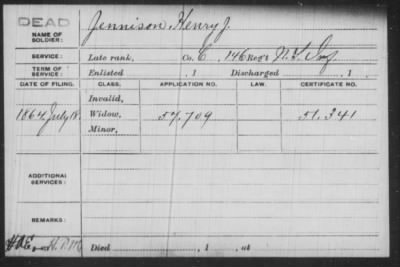 DEAD
NAME OF SOLDIER: Jennison, Henry J.
SERVICE: Late rank, Co. C, 146 Reg't N.Y. Inf
TERM OF SERVICE: Enlisted , 1 . Discharged , 1 .
DATE OF FILING. CLASS. APPLICATION NO. LAW. CERTIFICATE NO.
Invalid,
1864 July 18. Widow, 57.709 51.341
Minor,
ADDITIONAL SERVICES:
REMARKS:
Died , 1 , at